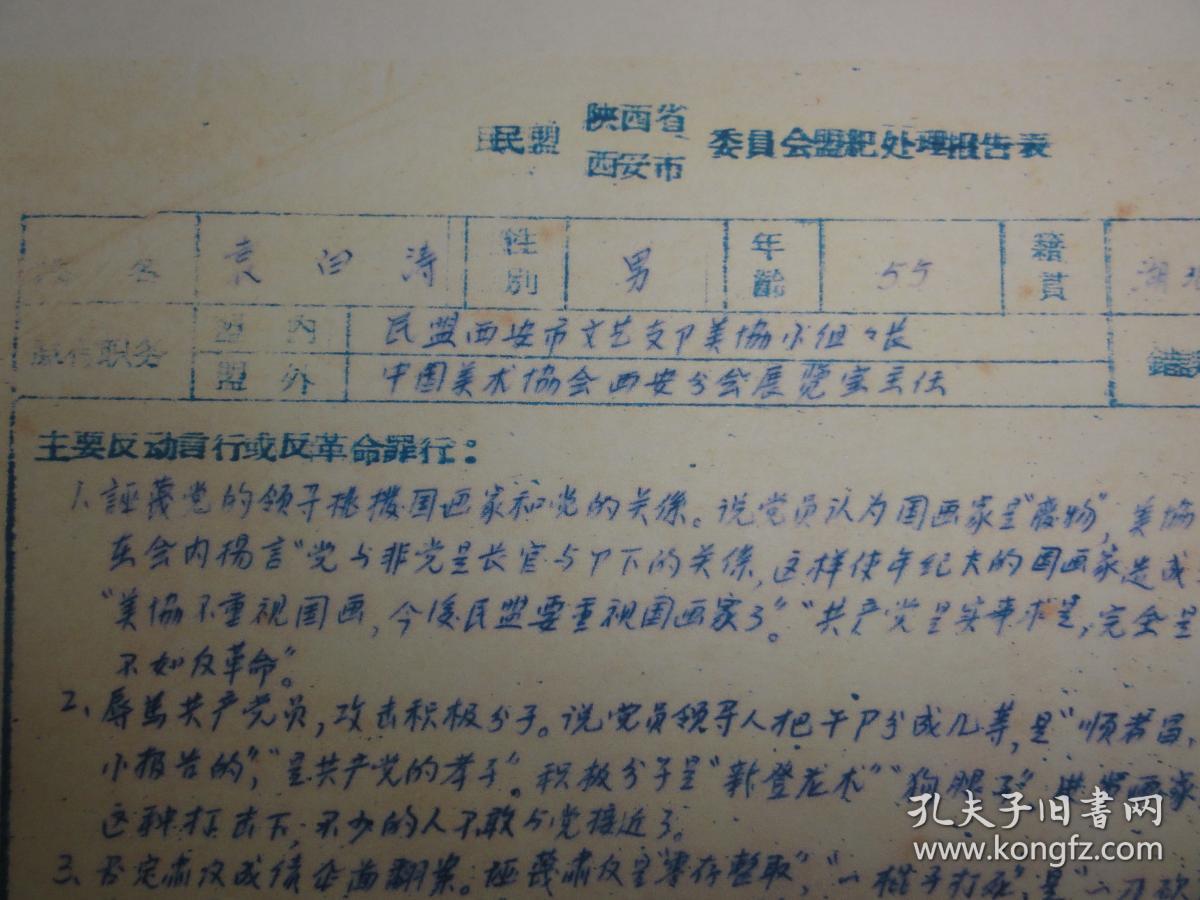 民盟 陕西省 西安市 委員会盟紀处理报告表
姓名 袁白涛 性別 男 年齡 55 籍貫 湖
现任职务 盟内 民盟西安市文艺支卩美協小组〃长
盟外 中国美术協会西安分会展覽室主任
主要反动言行或反革命罪行：
1、誣蔑党的领导挑撥国画家和党的关係。说党员认为国画家是“廢物”，美協
在会内揚言“党与非党是长官与卩下的关係，这样使年纪大的国画家造成
“美協不重视国画，今後民盟要重视国画家了。”“共产党是实事求是，完全是
不如反革命”。
2、辱骂共产党员，攻击积极分子。说党员领导人把干卩分成几等，是“顺者昌，
小报告的”，“是共产党的孝子”。积极分子是“新登龙术”“狗腿子”，
这种打击下，不少的人不敢与党接近了。
3、否定肃反成绩企图翻案。誣蔑肃反是“零存整取”，“一棍子打死”，是“一刀砍
孔夫子旧书网
www.kongfz.com